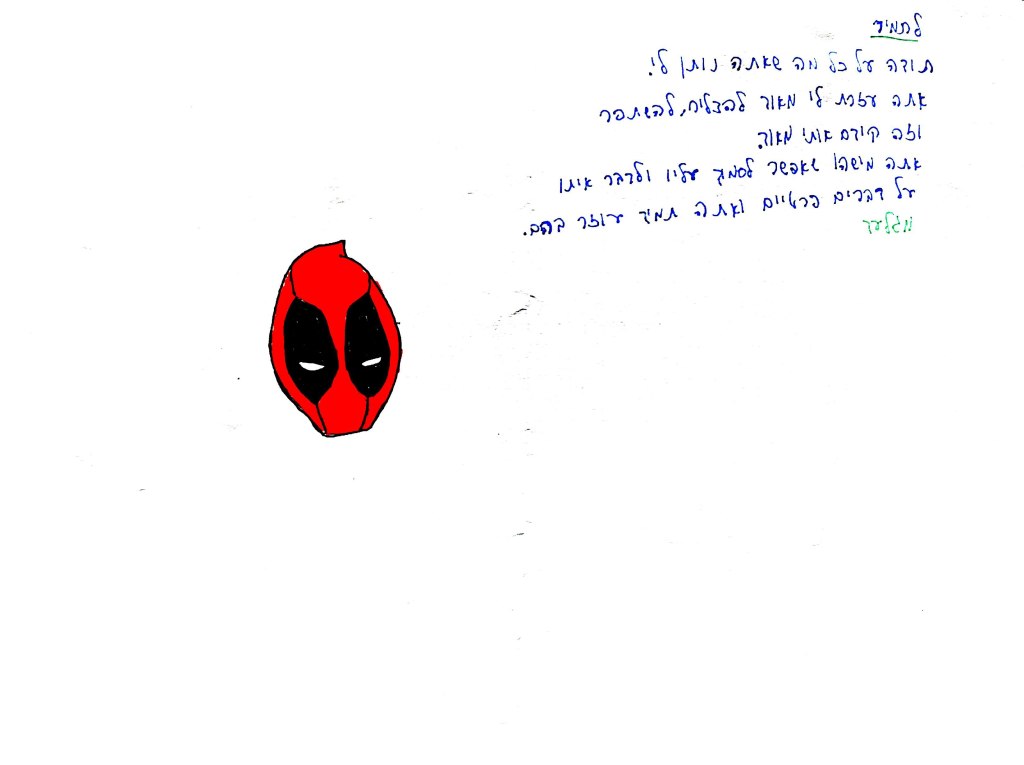 לתמיר
תודה על כל מה שאתה נותן לי.
אתה עזרת לי מאוד להצליח, להשתפר
וזה קידם אותי מאוד.
אתה מישהו שאפשר לסמוך עליו ולדבר איתו
על דברים פרטיים ואתה תמיד עוזר בהם.
מגלעד